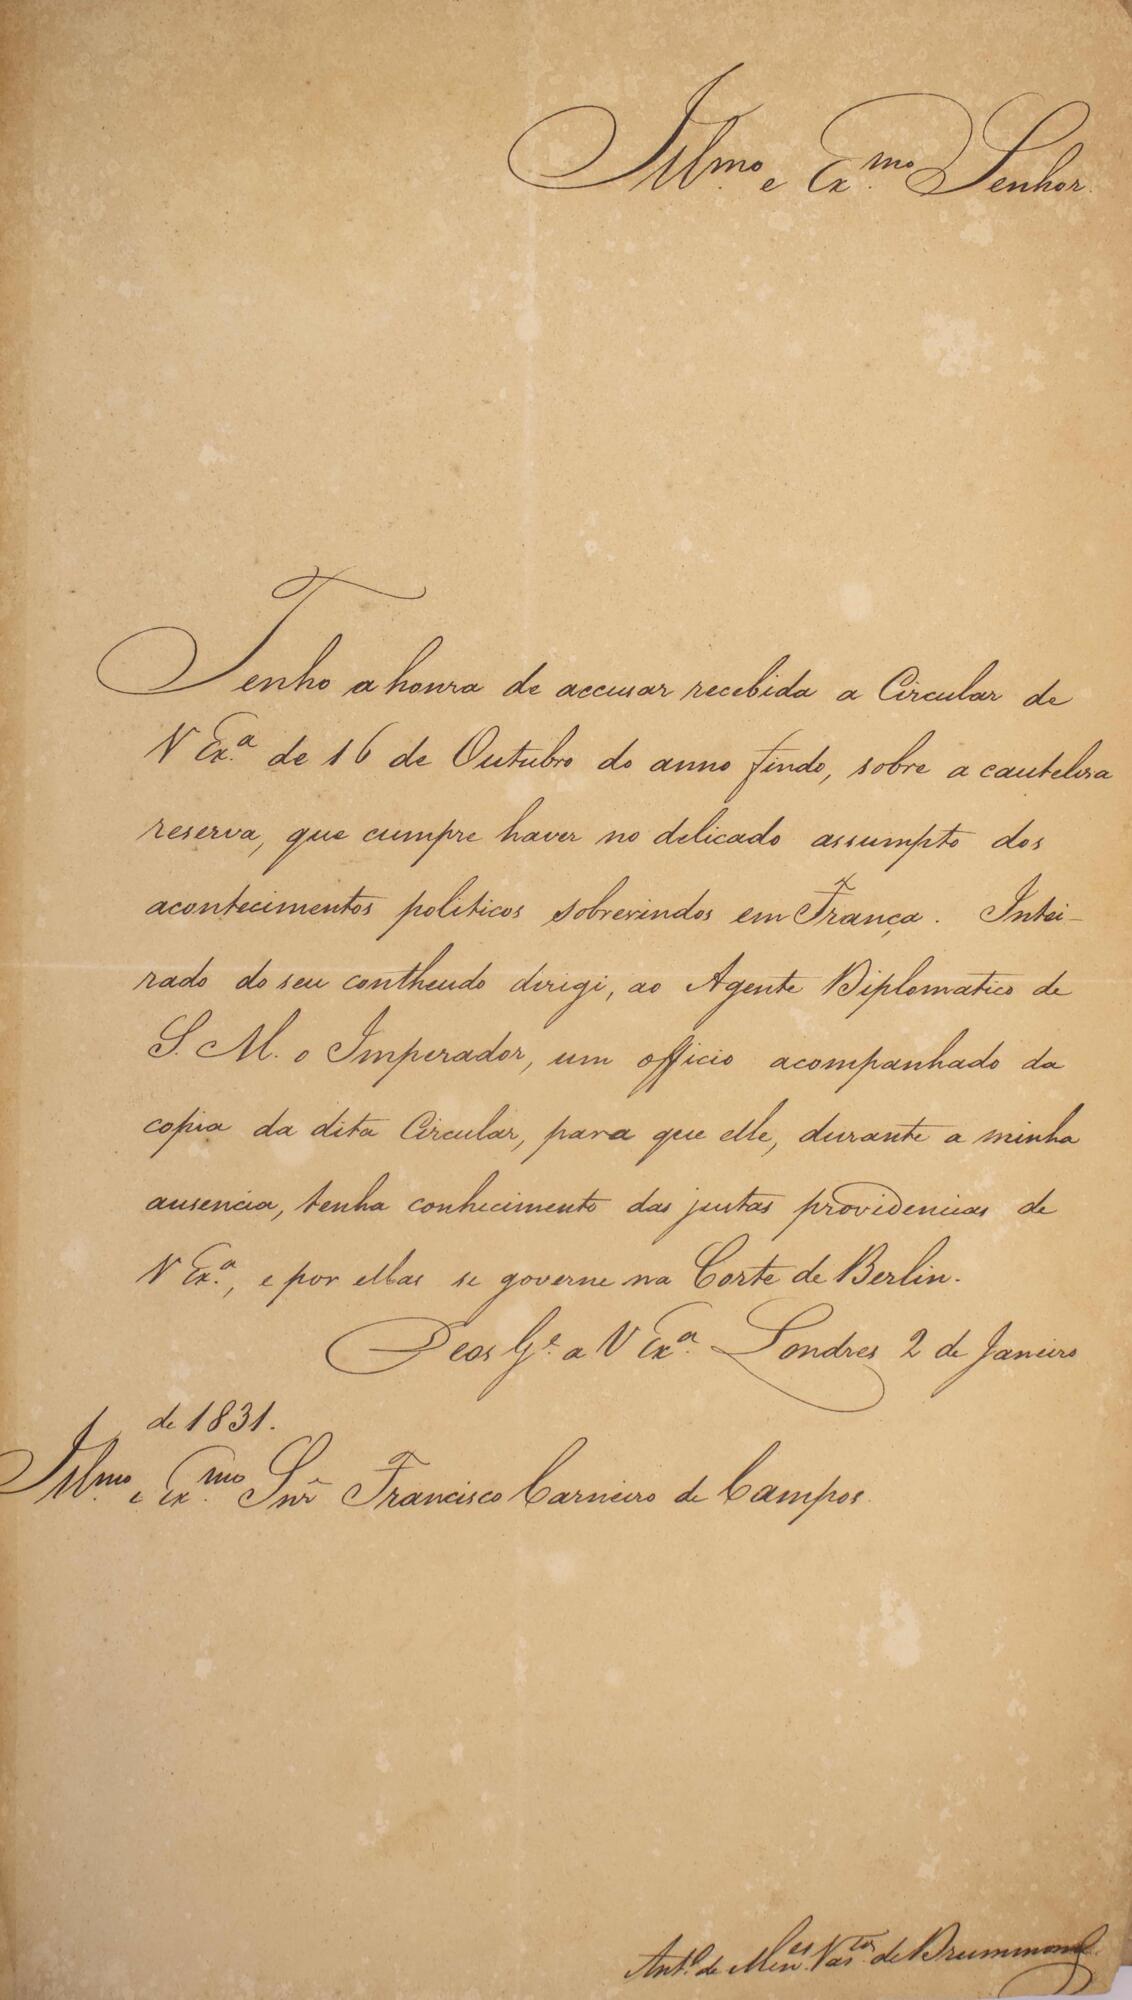 Illmo. e Exmo. Senhor.
Tenho a honra de accusar recebida a Circular de
V Exa. de 16 de Outubro do anno findo, sobre a cautelosa
reserva, que cumpre haver no delicado assumpto dos
acontecimentos politicos sobrevindos em França. Intei-
rado do seu contheudo dirigi, ao Agente Diplomatico de
S. M. o Imperador, um officio acompanhado da
copia da dita Circular, para que elle, durante a minha
ausencia, tenha conhecimento das justas providencias de
V Exa., e por ellas se governe na Corte de Berlin.
Deos Ge. a V Exa. Londres 2 de Janeiro
de 1831.
Illmo. e Exmo. Snr Francisco Carneiro de Campos.
Anto. de Menes. Vastos. de Drummond.